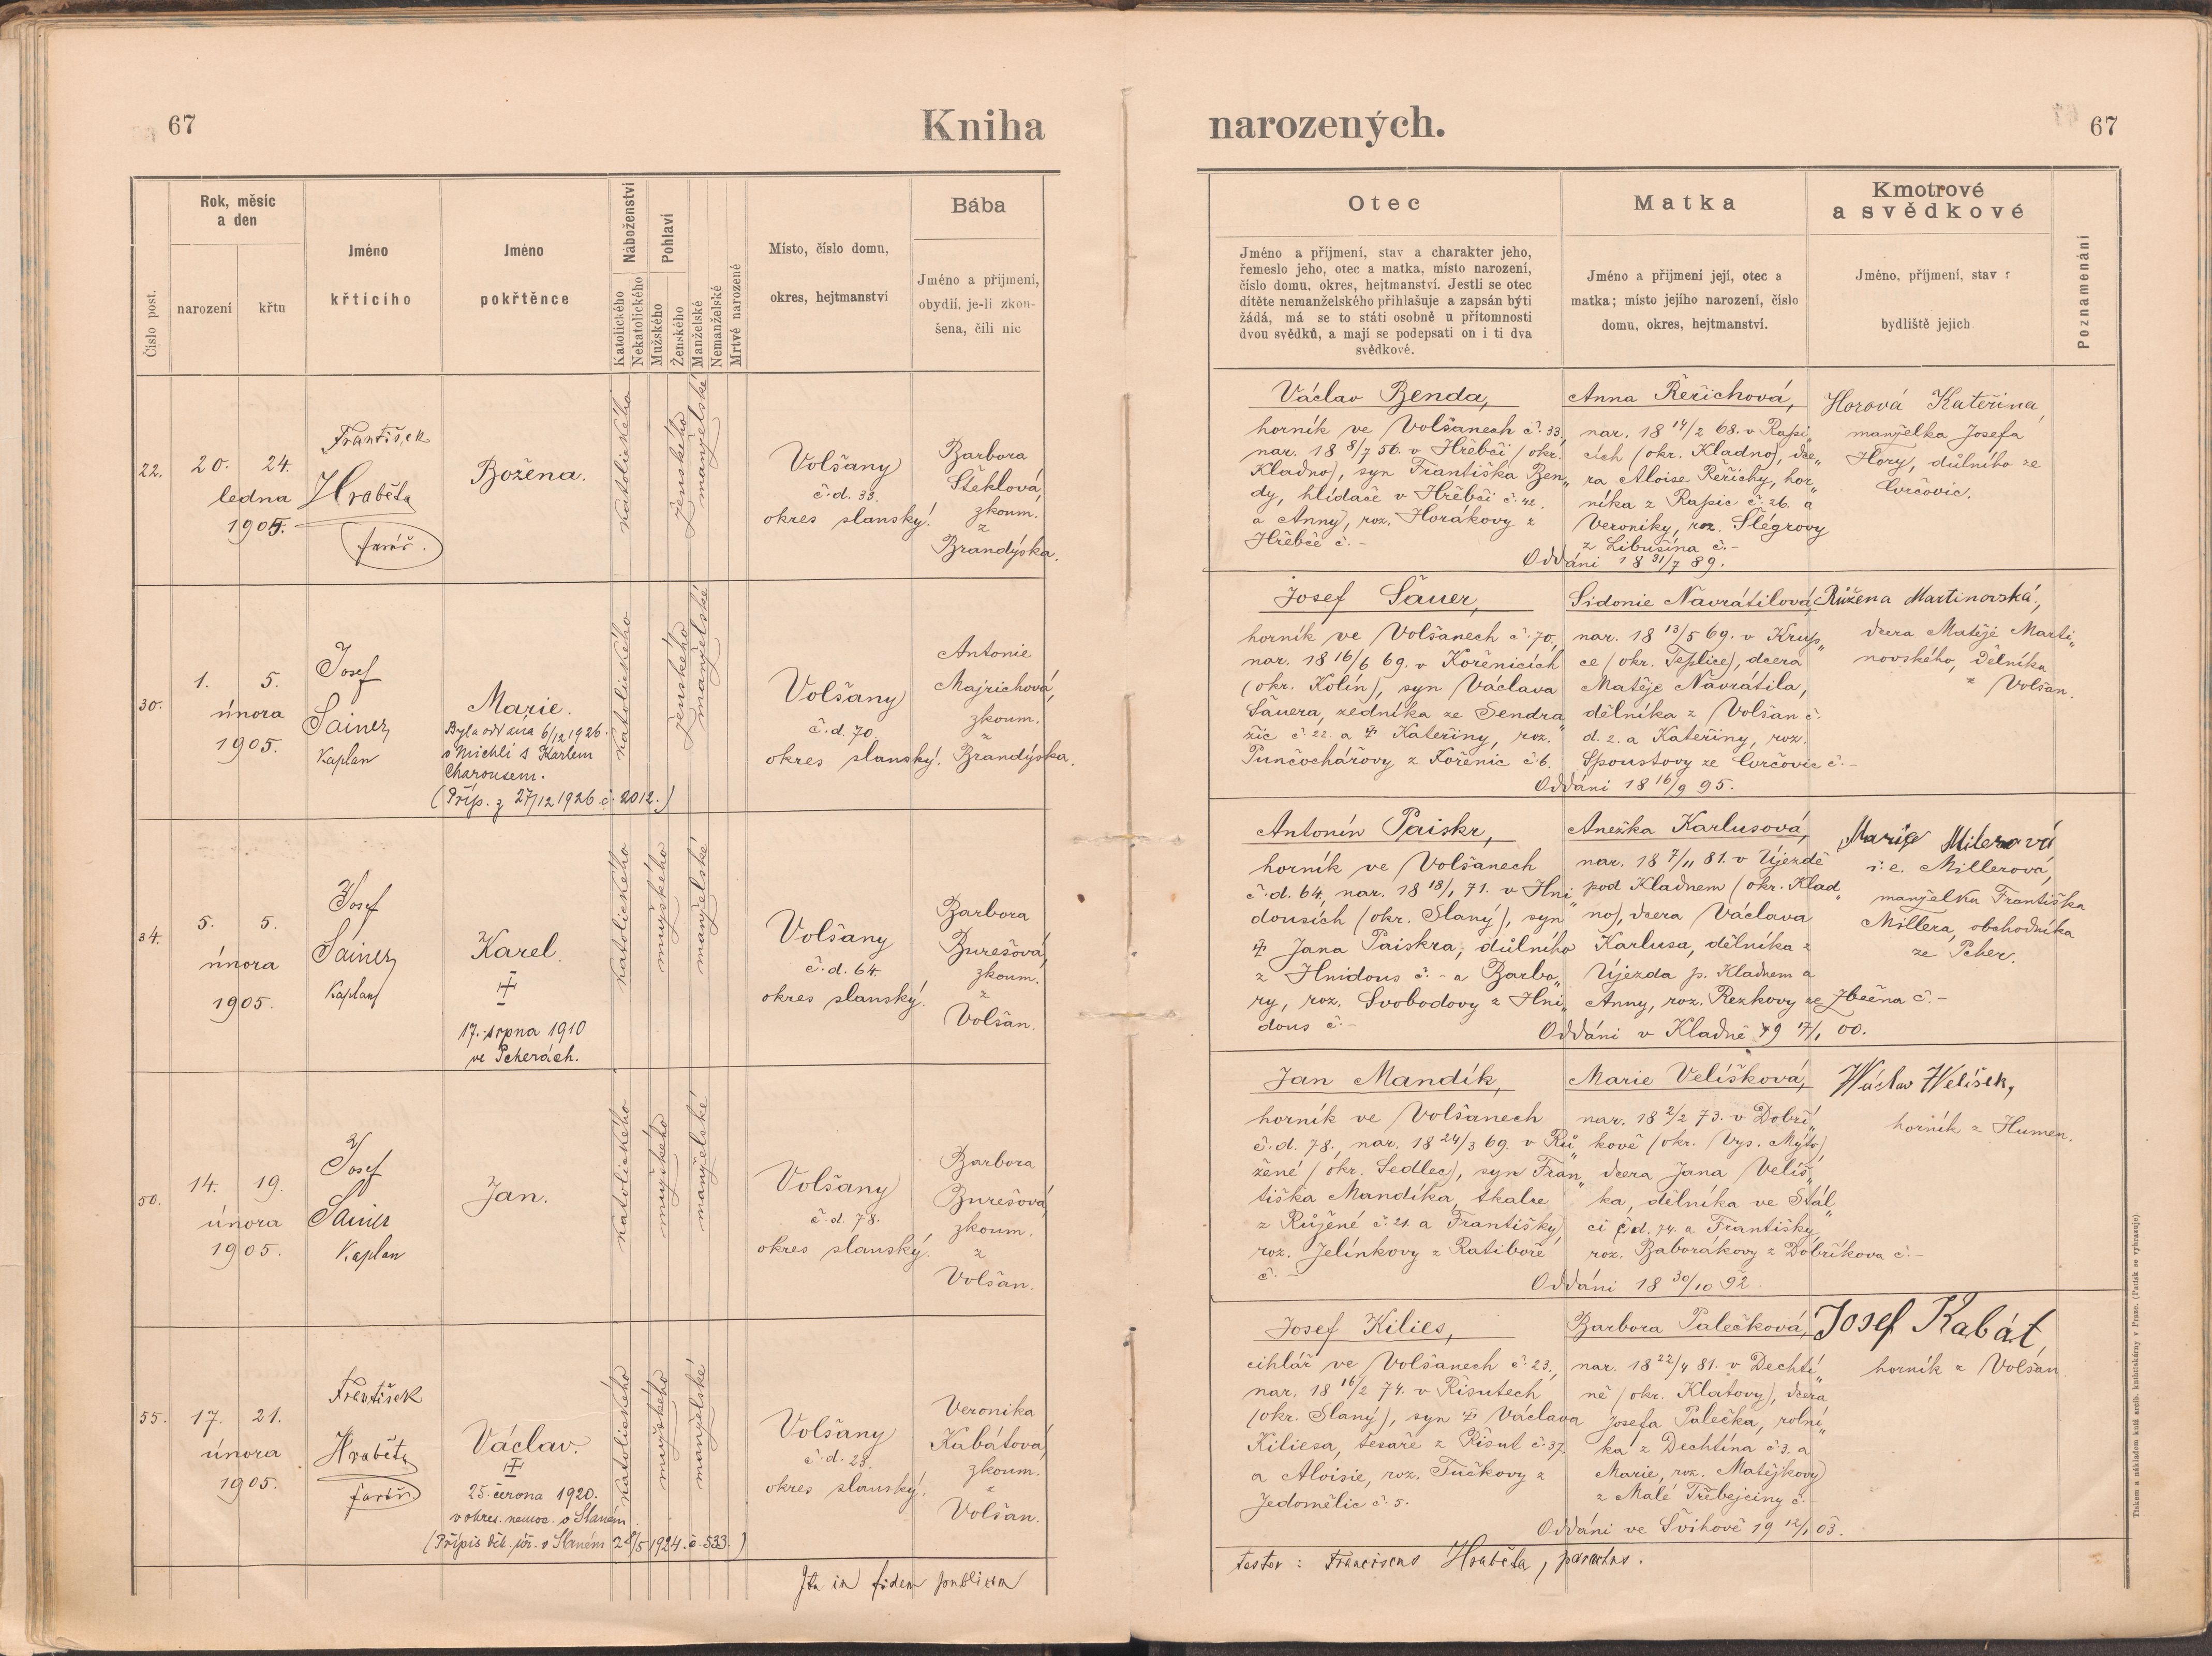 67
Kniha
Rok, měsíc
a den
Bába
Číslo post.
narození
křtu
Jméno
křticího
Jméno
pokřtěnce
Náboženství
Katolického
Nekatolického
Pohlaví
Mužského
Ženského
Manželské
Nemanželské
Mrtvé narozené
Místo, číslo domu,
okres, hejtmanství
Jméno a přijmení,
obydlí, je-li zkou-
šena, čili nic
22.
20. 24.
ledna
1905.
František
Hraběta
farář.
Božena.
katolického
ženského
manželské
Volšany
č. d. 33.
okres slanský.
Barbora
Šteklová,
zkoum.
z
Brandýska.
30.
1. 5.
února
1905.
Josef
Sainer
Kaplan
Marie.
Byla oddána 6/12 1926.
v Michli s Karlem
Charousem.
(Příp. z 27/12 1926 č. 2012.)
katolického
ženského
manželské
Volšany
č. d. 70.
okres slanský.
Antonie
Majrichová,
zkoum.
z
Brandýska.
34.
5. 5.
února
1905.
Josef
Sainer
Kaplan
Karel.
17. srpna 1910
ve Pcherách.
katolického
mužského
manželské
Volšany
č. d. 64.
okres slanský.
Barbora
Burešová,
zkoum.
z
Volšan.
50.
14. 19.
února
1905.
Josef
Sainer
Kaplan
Jan.
katolického
mužského
manželské
Volšany
č. d. 78.
okres slanský.
Barbora
Burešová,
zkoum.
z
Volšan.
55.
17. 21.
února
1905.
František
Hraběta
farář.
Václav.
25. června 1920.
v okres. nemoc. v Slaném.
(Přípis děk. úř. v Slaném 28/5 1924. č. 533.)
katolického
mužského
manželské
Volšany
č. d. 23.
okres slanský.
Veronika
Kabátová,
zkoum.
z
Volšan.
Ita in fidem publicam
narozených.
67
Otec
Jméno a příjmení, stav a charakter jeho,
řemeslo jeho, otec a matka, místo narození,
číslo domu, okres, hejtmanství. Jestli se otec
dítěte nemanželského přihlašuje a zapsán býti
žádá, má se to státi osobně u přítomnosti
dvou svědků, a mají se podepsati on i ti dva
svědkové.
Matka
Jméno a přijmení její, otec a
matka; místo jejího narození, číslo
domu, okres, hejtmanství.
Kmotrové
a svědkové
Jméno, příjmení, stav
bydliště jejich
Poznamenání
Václav Benda,
horník ve Volšanech č. 33,
nar. 18 8/7 56. v Hřebči (okr.
Kladno), syn Františka Ben„
dy, hlídače v Hřebči č. 42.
a Anny, roz. Horákovy z
Hřebče č. -
Anna Řeřichová,
nar. 18 14/2 68. v Rapi„
cích (okr. Kladno), dce„
ra Aloise Řeřichy, hor„
níka z Rapic č. 26. a
Veroniky, roz. Šlégrovy
z Libušína č. -
Oddáni 18 31/7 89.
Horová Kateřina,
manželka Josefa
Hory, důlního ze
Cvrčovic.
Josef Šauer,
horník ve Volšanech č. 70,
nar. 18 16/6 69. v Kořenicích
(okr. Kolín), syn Václava
Šauera, zedníka ze Sendra„
žic č. 22. a Kateřiny, roz.
Punčochářovy z Kořenic č. 6.
Sidonie Navrátilová,
nar. 18 13/5 69. v Krup„
ce (okr. Teplice), dcera
Matěje Navrátila,
dělníka z Volšan č.
d. 2. a Kateřiny, roz.
Spoustovy ze Cvrčovic č. -
Oddáni 18 16/9 95.
Růžena Martinovská,
dcera Matěje Marti„
novského, dělníka
z Volšan.
Antonín Paiskr,
horník ve Volšanech
č. d. 64, nar. 18 18/1 71. v Hni„
dousích (okr. Slaný), syn
Jana Paiskra, důlního
z Hnidous č. - a Barbo„
ry, roz. Svobodovy z Hni„
dous č. -
Anežka Karlusová,
nar. 18 7/11 81. v Újezdě
pod Kladnem (okr. Klad„
no), dcera Václava
Karlusa, dělníka z
Újezda p. Kladnem a
Anny, roz. Rezkovy ze Zbečna č. -
Oddáni v Kladně 19 7/1 00.
Marie Milerová
i. e. Millerová,
manželka Františka
Millera, obchodníka
ze Pcher.
Jan Mandík,
horník ve Volšanech
č. d. 78., nar. 18 24/3 69. v Rů„
žené (okr. Sedlec), syn Fran„
tiška Mandíka, tkalce
z Růžené č. 21. a Františky,
roz. Jelínkovy z Ratiboře
č. -
Marie Velíšková,
nar. 18 2/2 73. v Dobří„
kově (okr. Vys. Mýto),
dcera Jana Velíš„
ka, dělníka ve Stál„
ci č. d. 74. a Františky,
roz. Baborákovy z Dobříkova č. -
Oddáni 18 30/10 92.
Wáclav Welíšek,
horník z Humen.
Josef Kilies,
cihlář ve Volšanech č. 23,
nar. 18 16/2 74. v Řisutech
(okr. Slaný), syn Václava
Kiliesa, tesaře z Řisut č. 37.
a Aloisie, roz. Tučkovy z
Jedomělic č. 5.
Barbora Palečková,
nar. 18 22/4 81. v Dechtí„
ně (okr. Klatovy), dcera
Josefa Palečka, rolní„
ka z Dechtína č. 3. a
Marie, roz. Matějkovy
z Malé Třebejciny č. -
Oddáni ve Švihově 19 12/1 03.
Josef Kabát,
horník z Volšan
testor: Franciscus Hraběta, parochus.
Tiskem a nákladem knížé arcib. knihtiskárny v Praze. (Patisk se vyhrazuje)